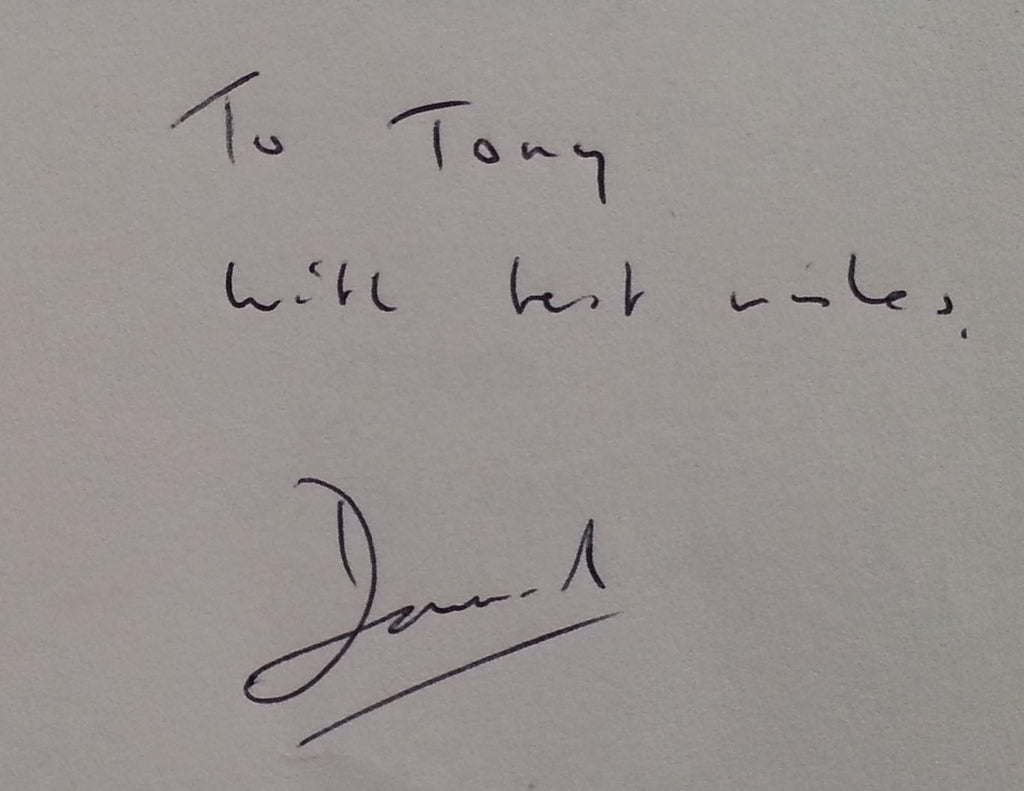 To Tony
with best wishes.